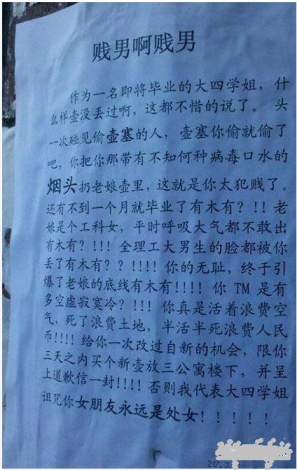 贱男啊贱男
作为一名即将毕业的大四学姐，什
么样壶没丢过啊，这都不惜的说了。头
一次碰见偷壶塞的人，壶塞你偷就偷了
吧，你把你那带有不知何种病毒口水的
烟头扔老娘壶里，这就是你太犯贱了。
还有不到一个月就毕业了有木有？!! 老
娘是个工科女，平时呼吸大气都不敢出
有木有？!!! 全理工大男生的脸都被你
丢了有木有？？!!!! 你的无耻，终于引
爆了老娘的底线有木有!!!! 你 TM 是有
多空虚寂寞冷？!!! 你真是活着浪费空
气，死了浪费土地，半活半死浪费人民
币!!!! 给你一次改过自新的机会，限你
三天之内买个新壶放三公寓楼下，并呈
上道歉信一封!!!! 否则我代表大四学姐
诅咒你女朋友永远是处女！！！！！